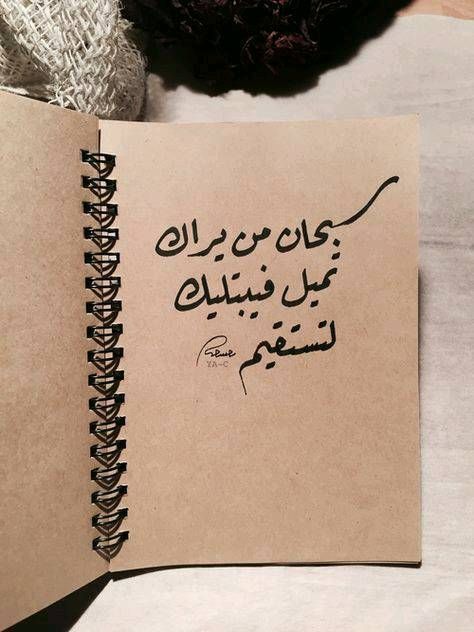 سبحان من يراك
تميل فيبتليك
لتستقيم
YA-C